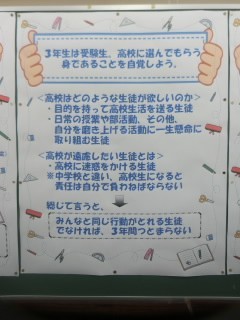 3年生は受験生。高校に選んでもらう
身であることを自覚しよう。
<高校はどのような生徒が欲しいのか>
・目的を持って高校生活を送る生徒
・日常の授業や部活動、その他、
自分を磨き上げる活動に一生懸命に
取り組む生徒
<高校が遠慮したい生徒とは>
・高校に迷惑をかける生徒
※中学校と違い、高校生になると
責任は自分で負わねばならない
総じて言うと、
みんなと同じ行動がとれる生徒
でなければ、3年間つとまらない